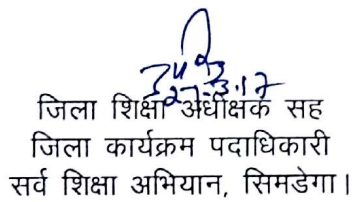 27.3.17
जिला शिक्षा अधीक्षक सह
जिला कार्यक्रम पदाधिकारी
सर्व शिक्षा अभियान, सिमडेगा।